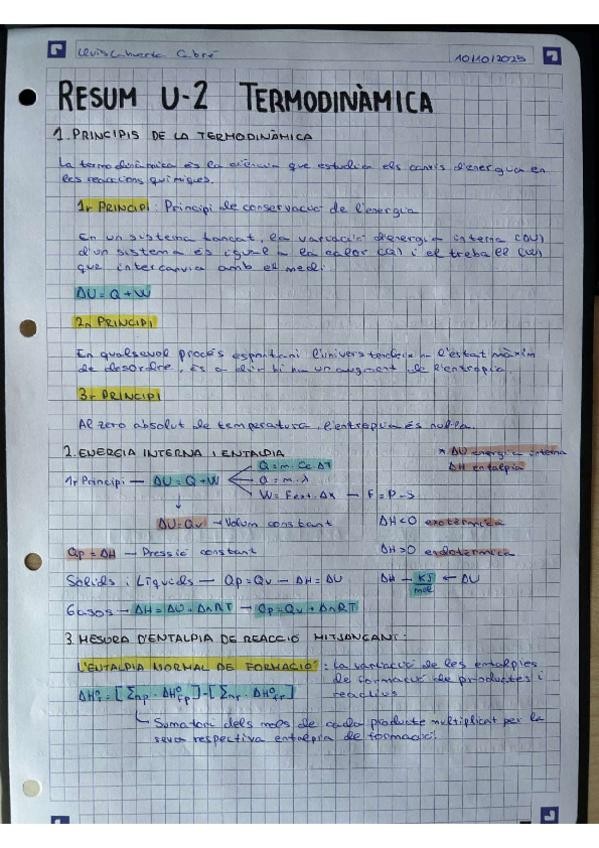 10/10/2025
RESUM U-2 TERMODINÀMICA
1. PRINCIPIS DE LA TERMODINÀMICA
La termodinàmica és la ciència que estudia els canvis d'energia en
les reaccions químiques.
1r PRINCIPI: Principi de conservació de l'energia
En un sistema tancat, la variació d'energia interna (ΔU)
d'un sistema és igual a la calor (Q) i el treball (W)
que intercanvia amb el medi.
ΔU = Q + W
2n PRINCIPI
En qualsevol procés espontani l'univers tendeix a l'estat màxim
de desordre, és a dir hi ha un augment de l'entropia.
3r PRINCIPI
Al zero absolut de temperatura, l'entropia és nul·la.
2. ENERGIA INTERNA I ENTALPIA
* ΔU energia interna
ΔH entalpia
Q = m · Ce · ΔT
1r Principi — ΔU = Q + W
Q = m · λ
W = Fext · Δx — F = P - S
↓
ΔU = Qv → Volum constant
ΔH < 0 exotèrmica
Qp = ΔH — Pressió constant
ΔH > 0 endotèrmica
Sòlids i Líquids — Qp = Qv — ΔH = ΔU
ΔH — KJ/mol ← ΔU
Gasos — ΔH = ΔU + ΔnRT — Qp = Qv + ΔnRT
3. MESURA D'ENTALPIA DE REACCIÓ MITJANÇANT:
L'ENTALPIA NORMAL DE FORMACIÓ: La variació de les entalpies
de formació de productes i
reactius
ΔH°r = [Σnp · ΔH°fp] - [Σnr · ΔH°fr]
Sumatori dels mols de cada producte multiplicat per la
seva respectiva entalpia de formació.